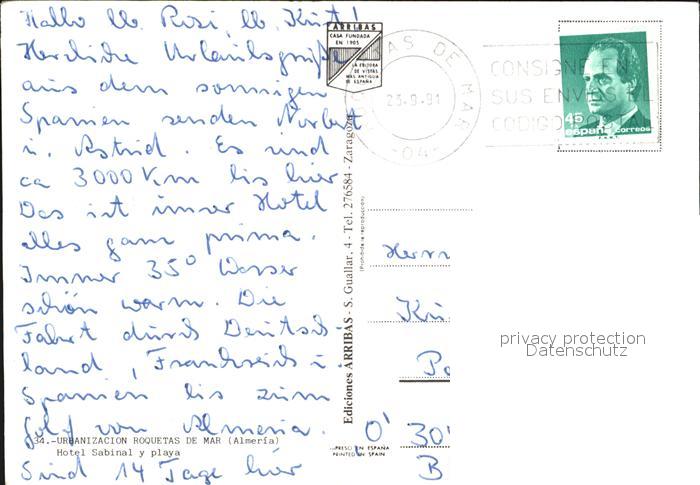 Hallo lb. Rosi, lb. Künt!
Herzliche Urlaubsgrüße
aus dem sonnigen
Spanien senden Norbert
u. Astrid. Es sind
ca 3000 Km bis hier
Das ist unser Hotel
alles ganz prima.
Immer 35° Wasser
schön warm. Die
Fahrt durch Deutsch-
land, Frankreich u.
Spanien bis zum
Golf von Almeria.
34.-URBANIZACION ROQUETAS DE MAR (Almería)
Hotel Sabinal y playa
Sind 14 Tage hier
ARRIBAS
CASA FUNDADA
EN 1905
LA EDITORA
DE VISTAS
MAS ANTIGUA
DE ESPAÑA
Ediciones ARRIBAS - S. Guallar, 4 - Tel. 276584 - Zaragoza
(Prohibida la reproducción)
PRINTED IN SPAIN
AS DE MAR
23-9-91
-04-
CONSIGNE EN
SUS ENVIOS EL
CODIGO
45
españa correos
Herrn
Kü
Po
O' 30
B
privacy protection
Datenschutz